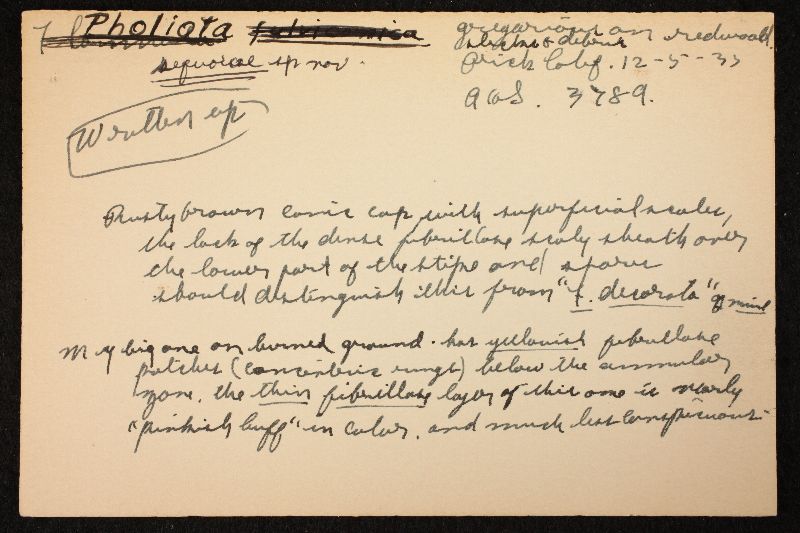 Pholiota fulviconica
sequoiae sp nov.
gregarious on redwood
sticks & debris
Orick Calif. 12-5-37
AHS. 3789.
Written up
Rusty brown conic cap with superficial scales,
the lack of the dense fibrillose scaly sheath over
the lower part of the stipe and spores
should distinguish this from "f. decorata" of mine
My big one on burned ground. has yellowish fibrillose
patches (concentric rings) below the annular
zone. the thin fibrillose layer of this one is nearly
"pinkish buff" in color, and much less conspicuous